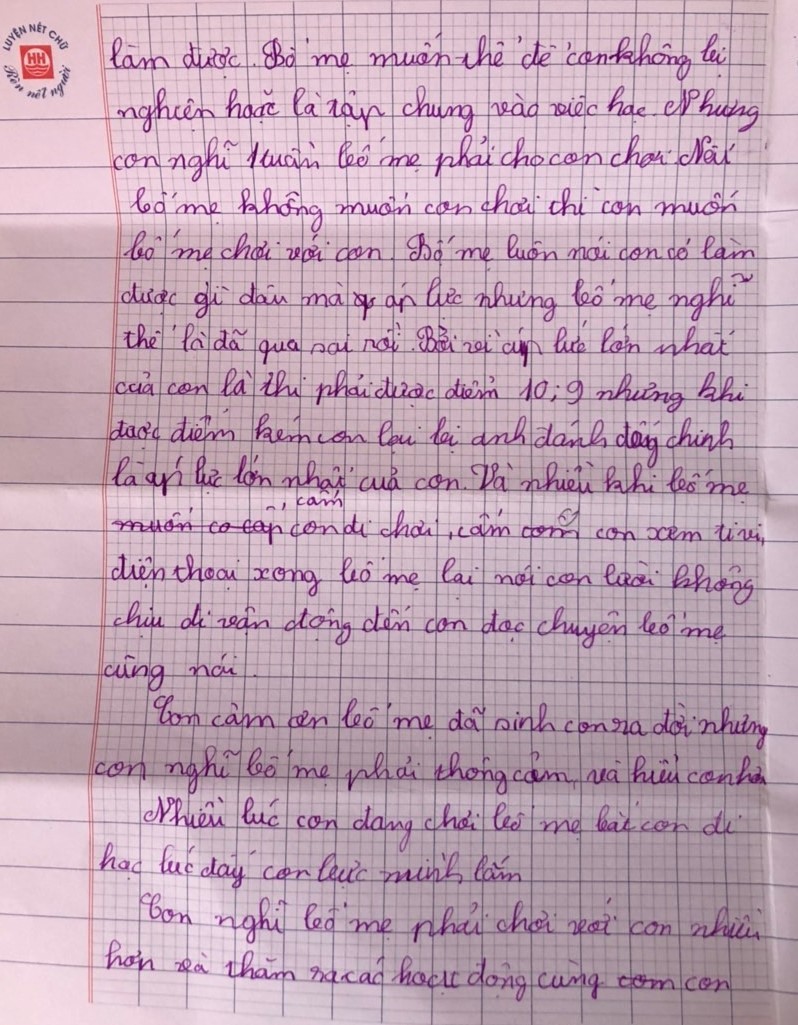 LUYỆN NÉT CHỮ
HH
Rèn nết người
làm được. Bố mẹ muốn thế để con không bị
nghiện hoặc là tập chung vào việc học. Nhưng
con nghĩ 1 tuần bố mẹ phải cho con chơi. Nếu
bố mẹ không muốn con chơi thì con muốn
bố mẹ chơi với con. Bố mẹ luôn nói con có làm
được gì đâu mà áp lực nhưng bố mẹ nghĩ
thế là đã quá sai rồi. Bởi vì áp lực lớn nhất
của con là thi phải được điểm 10; 9 nhưng khi
được điểm kém con lại bị anh đánh đấy chính
là áp lực lớn nhất của con. Và nhiều khi bố mẹ
muốn co cấp, cấm con đi chơi, cấm com con xem ti vi,
điện thoại xong bố mẹ lại nói con lười không
chịu đi vận động đến con đọc chuyện bố mẹ
cũng nói.
Con cảm ơn bố mẹ đã sinh con ra đời nhưng
con nghĩ bố mẹ phải thông cảm, và hiểu con hơn
Nhiều lúc con đang chơi bố mẹ bắt con đi
học lúc đấy con bực mình lắm
Con nghĩ bố mẹ phải chơi với con nhiều
hơn và thăm ra các hoạt động cùng com con